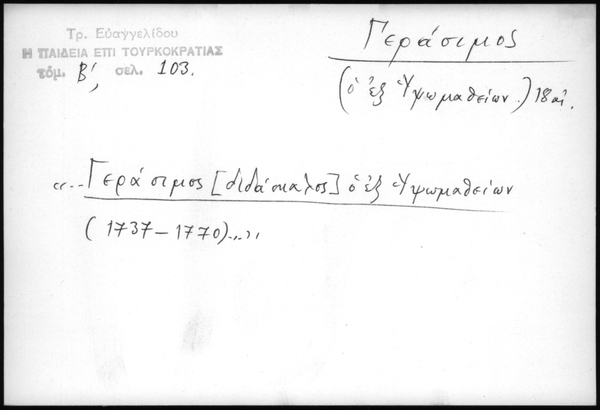 Τρ. Εὐαγγελίδου
Η ΠΑΙΔΕΙΑ ΕΠΙ ΤΟΥΡΚΟΚΡΑΤΙΑΣ
τόμ. Β', σελ. 103.
Γεράσιμος
(ὁ ἐξ Ὑψωμαθείων.) 18 αἰ.
«... Γεράσιμος [διδάσκαλος] ὁ ἐξ Ὑψωμαθείων
(1737-1770)...»